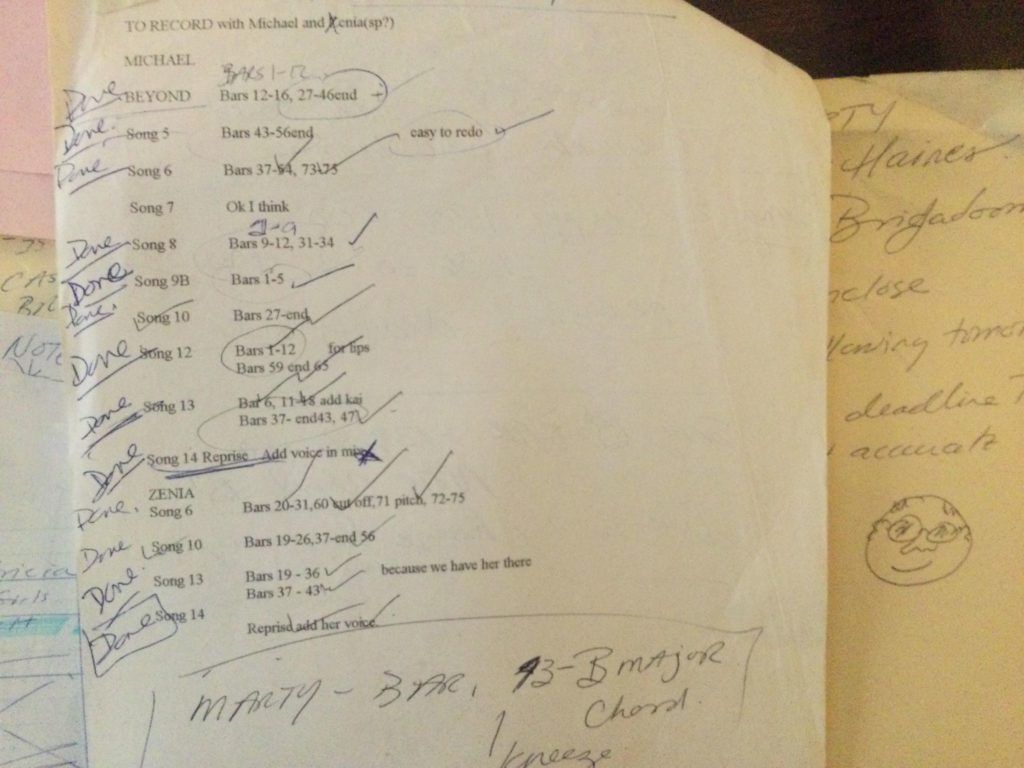 TO RECORD with Michael and Xenia(sp?)
MICHAEL
BARS 1-12
Done BEYOND Bars 12-16, 27-46end +
Done. Song 5 Bars 43-56end easy to redo
Done, Song 6 Bars 37-54, 73-75
Song 7 Ok I think
Done Song 8 Bars 9-12, 31-34
Done Song 9B Bars 1-5
Done. Song 10 Bars 27-end
Done Song 12 Bars 1-12 for lips
Bars 59 end 65
Done Song 13 Bar 6, 11-18 add kai
Bars 37- end43, 47
Done Song 14 Reprise Add voice in mix
ZENIA
Done. Song 6 Bars 20-31,60 cut off,71 pitch, 72-75
Done Song 10 Bars 19-26,37-end 56
Done. Song 13 Bars 19 - 36 because we have her there
Bars 37 - 43
Done Song 14 Reprise add her voice
MARTY - BAR, 93-B MAJOR
Chord.
CAS
NOTE
Haines
Brigadoon
deadline